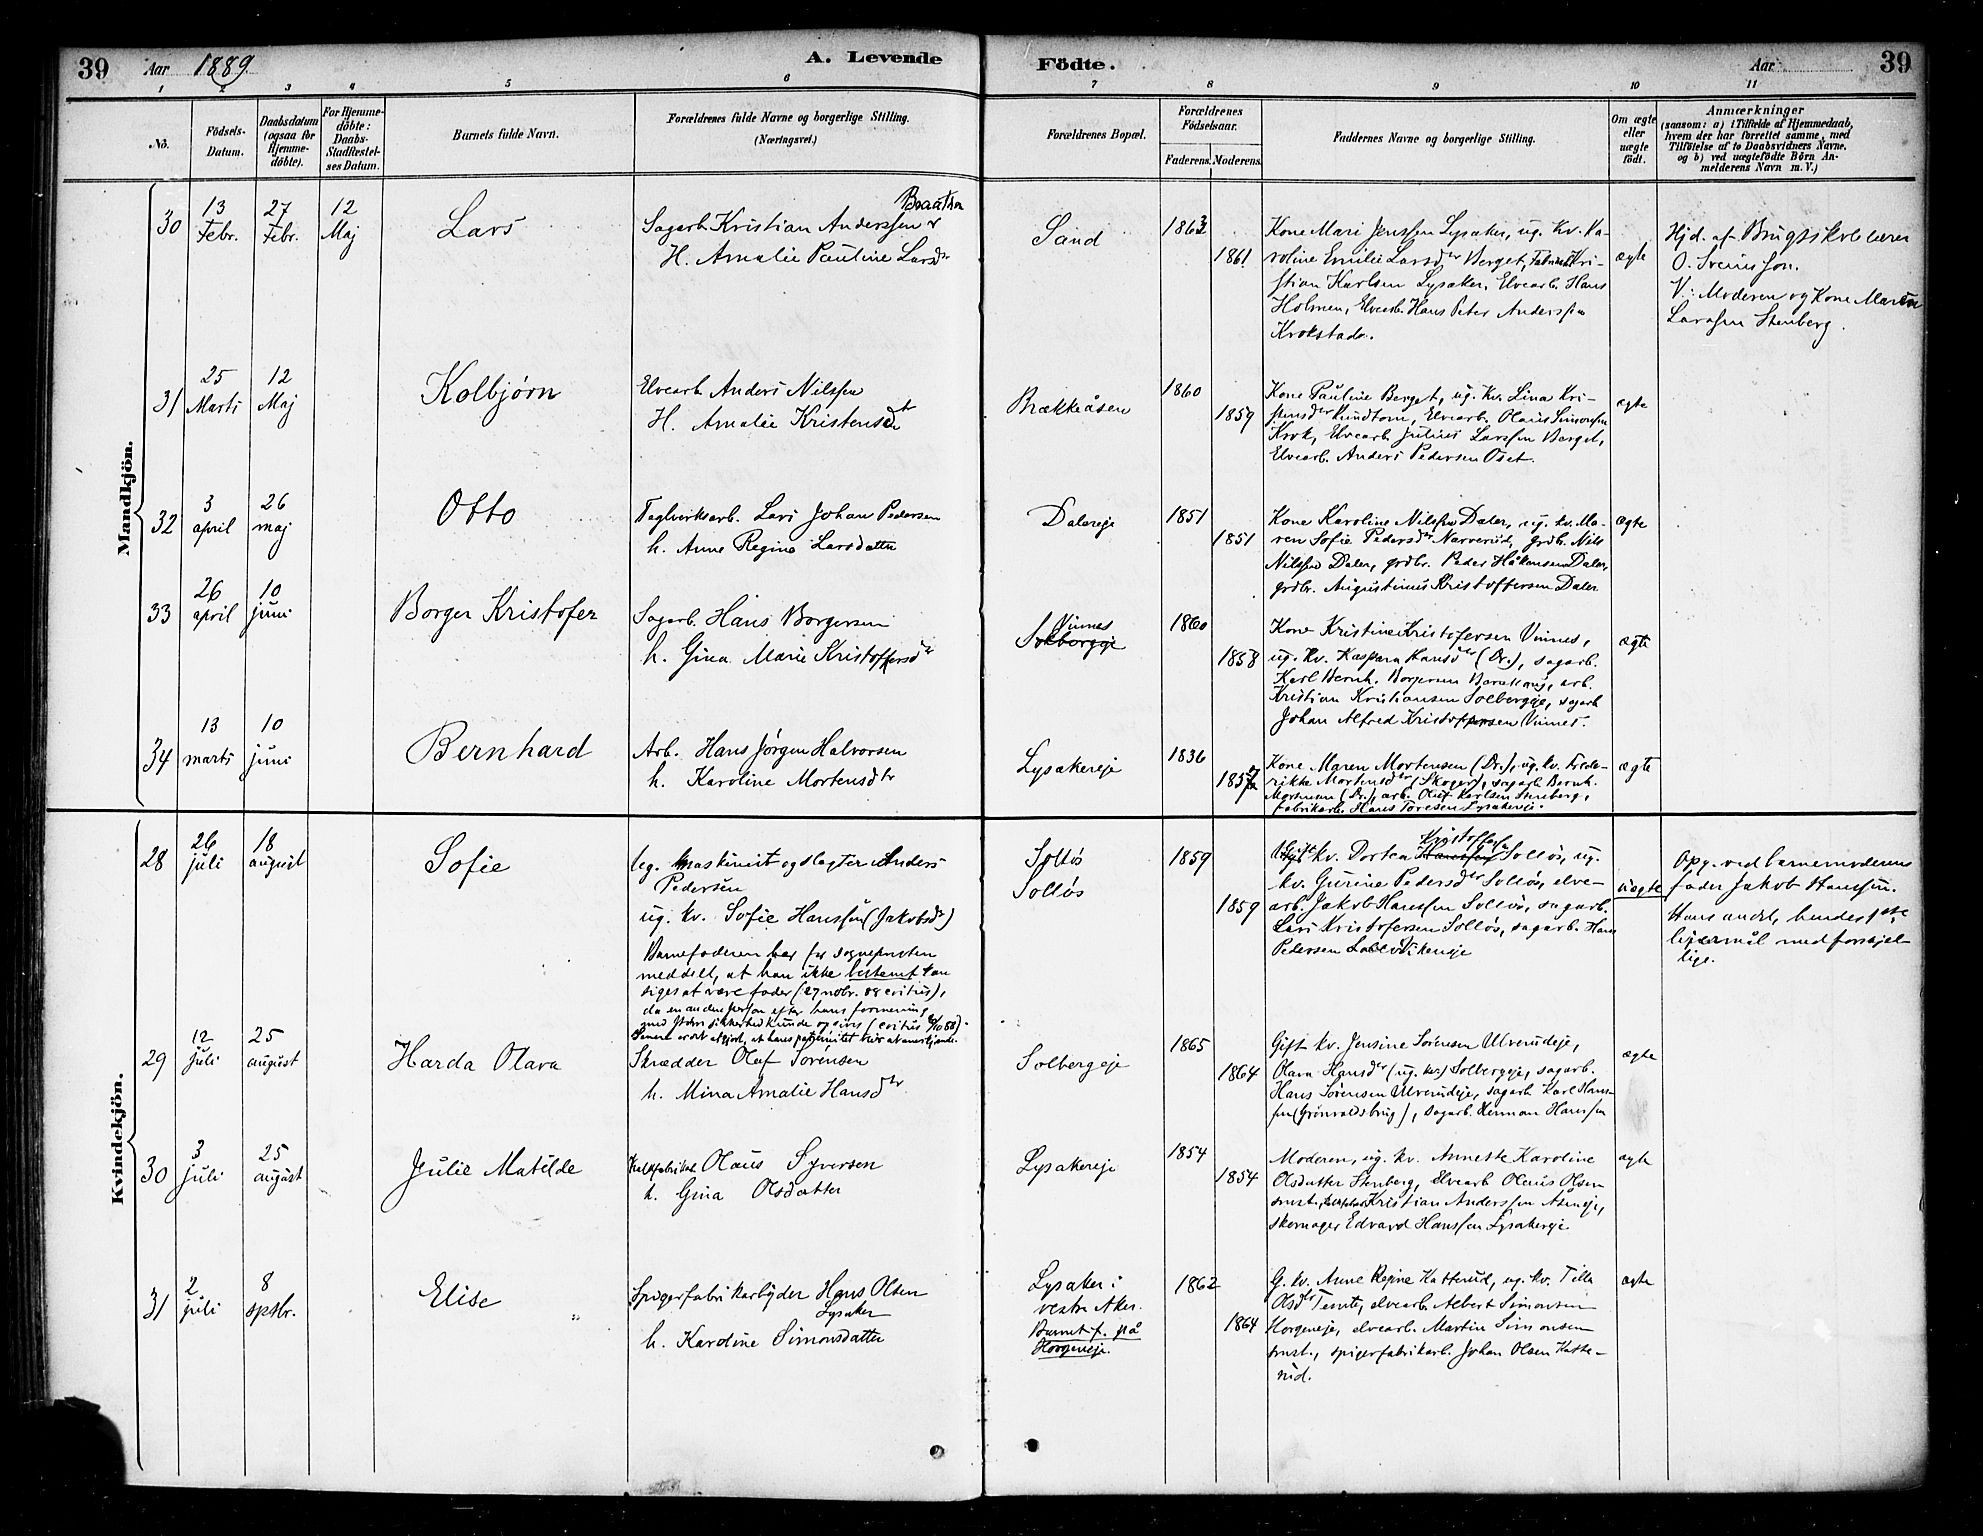 39 Aar 1889. A. Levende Födte. Aar 39
1 2 3 4 5 6 7 8 9 10 11
No.
Födsels-Datum.
Daabsdatum (ogsaa for Hjemme-döbte).
For Hjemme-döbte: Daabs-Stadfæstel-ses Datum.
Barnets fulde Navn.
Forældrenes fulde Navne og borgerlige Stilling.
(Næringsvei.)
Forældrenes Bopæl.
Forældrenes Födselsaar.
Faderens. Moderens.
Faddernes Navne og borgerlige Stilling.
Om ægte eller uægte födt.
Anmærkninger
(saasom: a) i Tilfælde af Hjemmedaab,
hvem der har forrettet samme, med
Tilföielse af to Daabsvidners Navne.
og b) ved uægtefödte Börn An-
melderens Navn m. V.)
Mandkjön.
30
13 Febr.
27 Febr.
12 Maj
Lars
Braaten
Sagarb. Kristian Anderssen
H. Amalie Pauline Larsdr
Sand
1863
1861
Kone Mari Jenssen Lysaker, ug. Kv. Ka-
roline Emilie Larsdr Berget, Kri-
stian Karlsen Lysaker, Elvearb. Hans
Holmen, Elvearb. Hans Peter Anderssen
Krokstad.
ægte
Hjd. af Brugsskolelærer
O. Svensson.
V.: Moderen og Kone Maren
Larssen Stenberg.
31
25 Marts
12 Maj
Kolbjørn
Elvearb. Anders Nilssen
H. Amalie Kristensdt
Brækkeåsen
1860
1859
Kone Pauline Berget, ug. Kv. Lina Kri-
stensdr, Elvearb. Olaus Simonsen
Krok, Elvearb. Julius Larssen Berget,
Elvearb. Anders Pedersen Oset.
ægte
32
3 april
26 maj
Otto
Teglverksarb. Lars Johan Pedersen
h. Anne Regine Larsdatter
Dalereje
1851
1851
Kone Karoline Nilssen Daler, ug. kv. Ma-
ren Sofie Pedersdr Narverud, grdbr. Nils
Nilssen Daler, grdbr. Peder Håkonsen Daler,
grdbr. Augustinus Kristoffersen Daler
ægte
33
26 april
10 juni
Borger Kristofer
Sagarb. Hans Borgersen
h. Gina Marie Kristoffersdr
Vinnes
Solbergeje
1860
1858
Kone Kristine Kristofersen Vinnes,
ug. kv. Kaspara Hansdr (Dr.), sagarb.
Karl Bernh. Borgersen, arb.
Kristian Kristiansen Solbergeje, sagarb
Johan Alfred Kristoffersen Vinnes.
ægte
34
13 marts
10 juni
Bernhard
Arb. Hans Jørgen Halvorsen
h. Karoline Mortensdtr
Lysakereje
1836
Kone Maren Mortensen (Dr.), ug. kv. Frede-
rikke Mortensdr (Skoger), sagarb. Bernh.
Mortensen (Dr.), arb. Oluf Karlsen Stenberg,
fabrikarb. Hans Toresen Lysakereje.
ægte
Kvindekjön.
28
26 juli
18 august
Sofie
leg. maskinist og slagter Anders
Pedersen
ug. kv. Sofie Hanssen (Jakobsdr)
Barnefaderen har for sognepresten
meddelt, at han ikke bestemt kan
siges at være fader (27 novbr. 08 coitus),
da en anden person efter hans formening
Solløs
Solløs
1859
1859
Gift kv. Dortea Kristoffersen Solløs, ug.
kv. Gurine Pedersdr Solløs, elve-
arb. Jakob Hanssen Solløs, sagarb.
Lars Kristofersen Solløs, sagarb. Hans
Pedersen
uægte
Opg. ved barnemoderens
fader Jakob Hanssen.
Hans andet, hendes 1ste
leiermål med forskjel-
lige.
29
12 juli
25 august
Harda Olava
Skrædder Oluf Sørensen
h. Mina Amalie Hansdtr
Solbergeje
1865
1864
Gift kv. Jensine Sørensen Ulverudeje,
Olava Hansdr (ug. kv.) Solbergeje, sagarb.
Hans Sørensen Ulverudeje, sagarb Karl Hans-
sen (Grønvoldsbrug), sagarb. Herman Hanssen
ægte
30
3 juli
25 august
Julie Matilde
Olaus Syversen
h. Gina Olsdatter
Lysakereje
1854
1854
Moderen, ug. kv. Annette Karoline
Olsdatter Stenberg, elvearb Olaus Olsen
smst., Kristian Anderssen Åseneje,
skomager Edvard Hanssen Lysakereje
ægte
31
2 juli
8 septbr.
Elise
Spigerfabrikarbejder Hans Olsen
Lysaker
h. Karoline Simonsdatter
Lysaker i
vestre Aker.
Barnet f. på
Horgeneje.
1862
1864
G. kv. Anne Regine Katterud, ug. kv. Tilla
Olsdr Temte, elvearb. Albert Simonsen
Horgeneje, elvearb. Martin Simonsen
smst., spigerfabrikarb. Johan Olsen Katte-
rud.
ægte